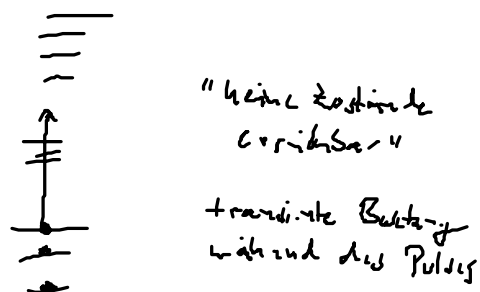 "keine Zustände
erreichbar"
transiente Besetzung
während des Pulses